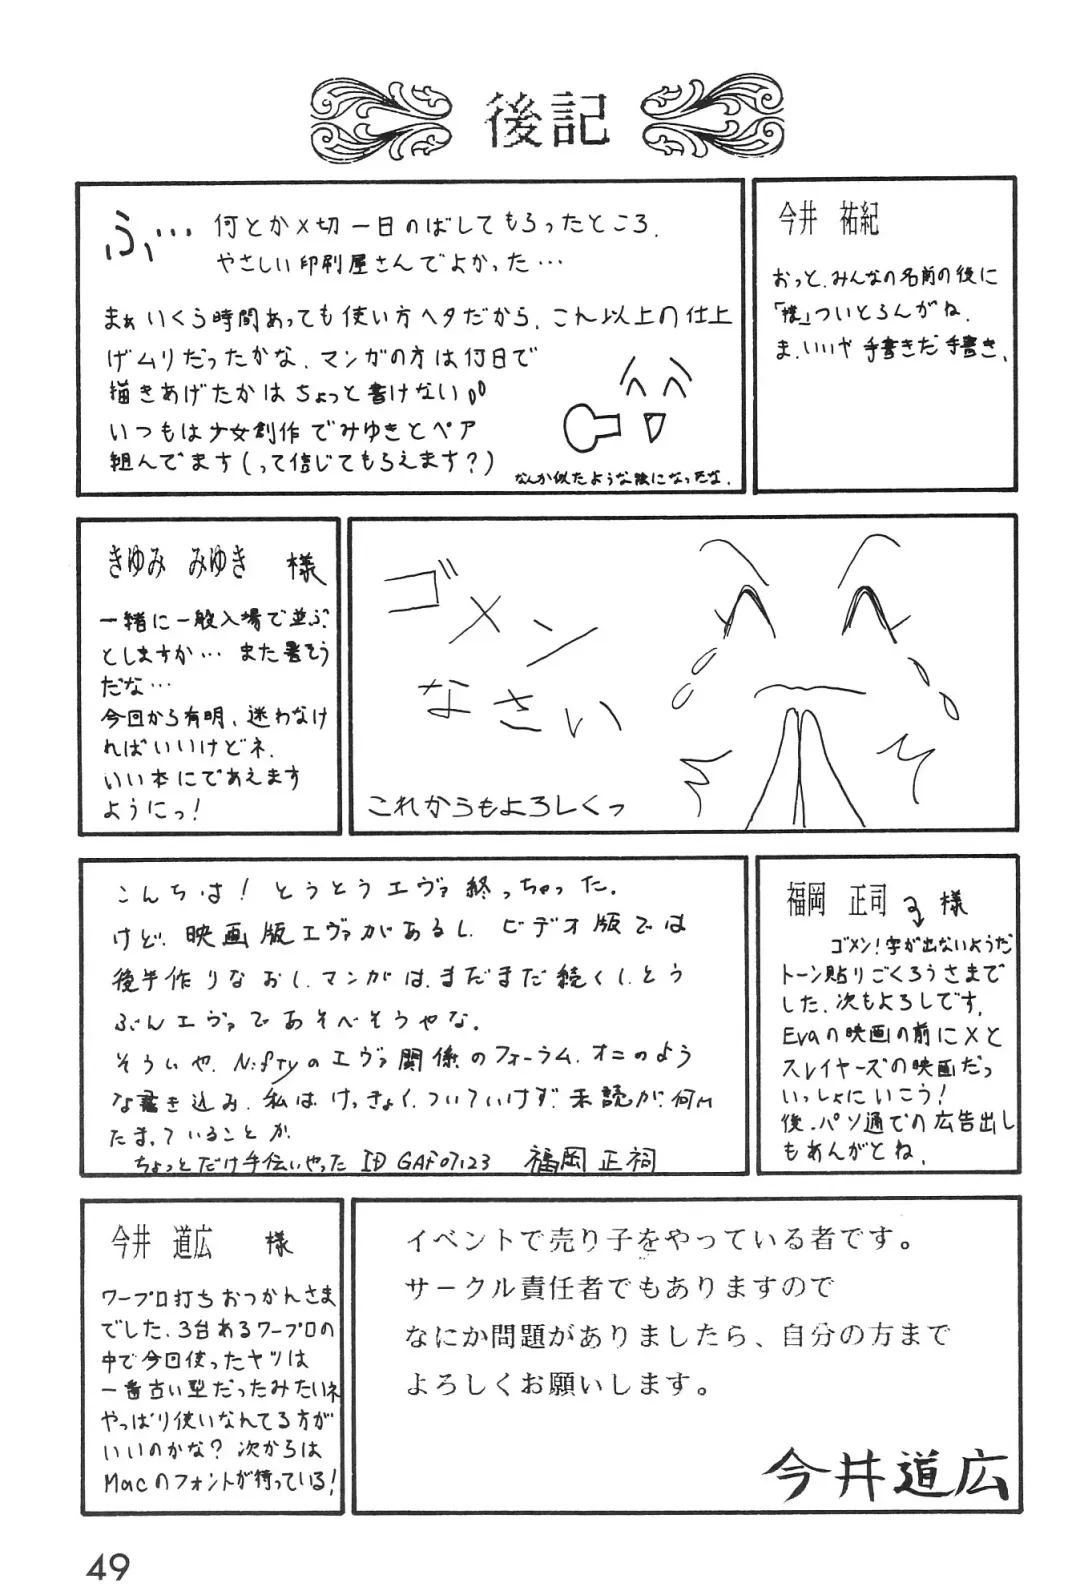 後記
ふ…
何とか〆切一日のばしてもらったところ.
やさしい印刷屋さんでよかった…
まぁいくら時間あっても使い方ヘタだから.これ以上の仕上
げムリだったかな.マンガの方は何日で
描きあげたかはちょっと書けない
いつもは少女創作でみゆきとペア
組んでます(って信じてもらえます?)
なんか似たような絵になったな.
今井 祐紀
おっと.みんなの名前の後に
「様」ついとろんがね.
ま.いいや手書きだ手書き.
きゆみ みゆき 様
一緒に一般入場で並ぶ
としますか… また暑そう
だな…
今回から有明、迷わなけ
ればいいけどネ.
いい本にであえます
ようにっ!
ゴメン
なさい
これからもよろしくっ
こんちは!とうとうエヴァ終っちゃった.
けど.映画版エヴァがあるし.ビデオ版では
後半作りなおし.マンガは.まだまだ続くし.とう
ぶんエヴァであそべそうやな。
そういや.Niftyのエヴァ関係のフォーラム.オニのよう
な書き込み.私はけっきょく.ついていけず.未読が.何M
たまっていることか.
ちょっとだけ手伝いやった ID GAF07123 福岡正祠
福岡 正司 様
ゴメン!字が出ないようだ
トーン貼りごくろうさまで
した.次もよろしです.
Evaの映画の前にXと
スレイヤーズの映画だっ
いっしょにいこう!
後.パソ通での広告出し
もあんがとね.
今井 道広 様
ワープロ打ちおつかんさま
でした.3台あるワープロの
中で今回使ったヤツは
一番古い型だったみたいネ
やっぱり使いなれてる方が
いいのかな?次からは
Macのフォントが待っている!
イベントで売り子をやっている者です。
サークル責任者でもありますので
なにか問題がありましたら、自分の方まで
よろしくお願いします。
今井道広
49